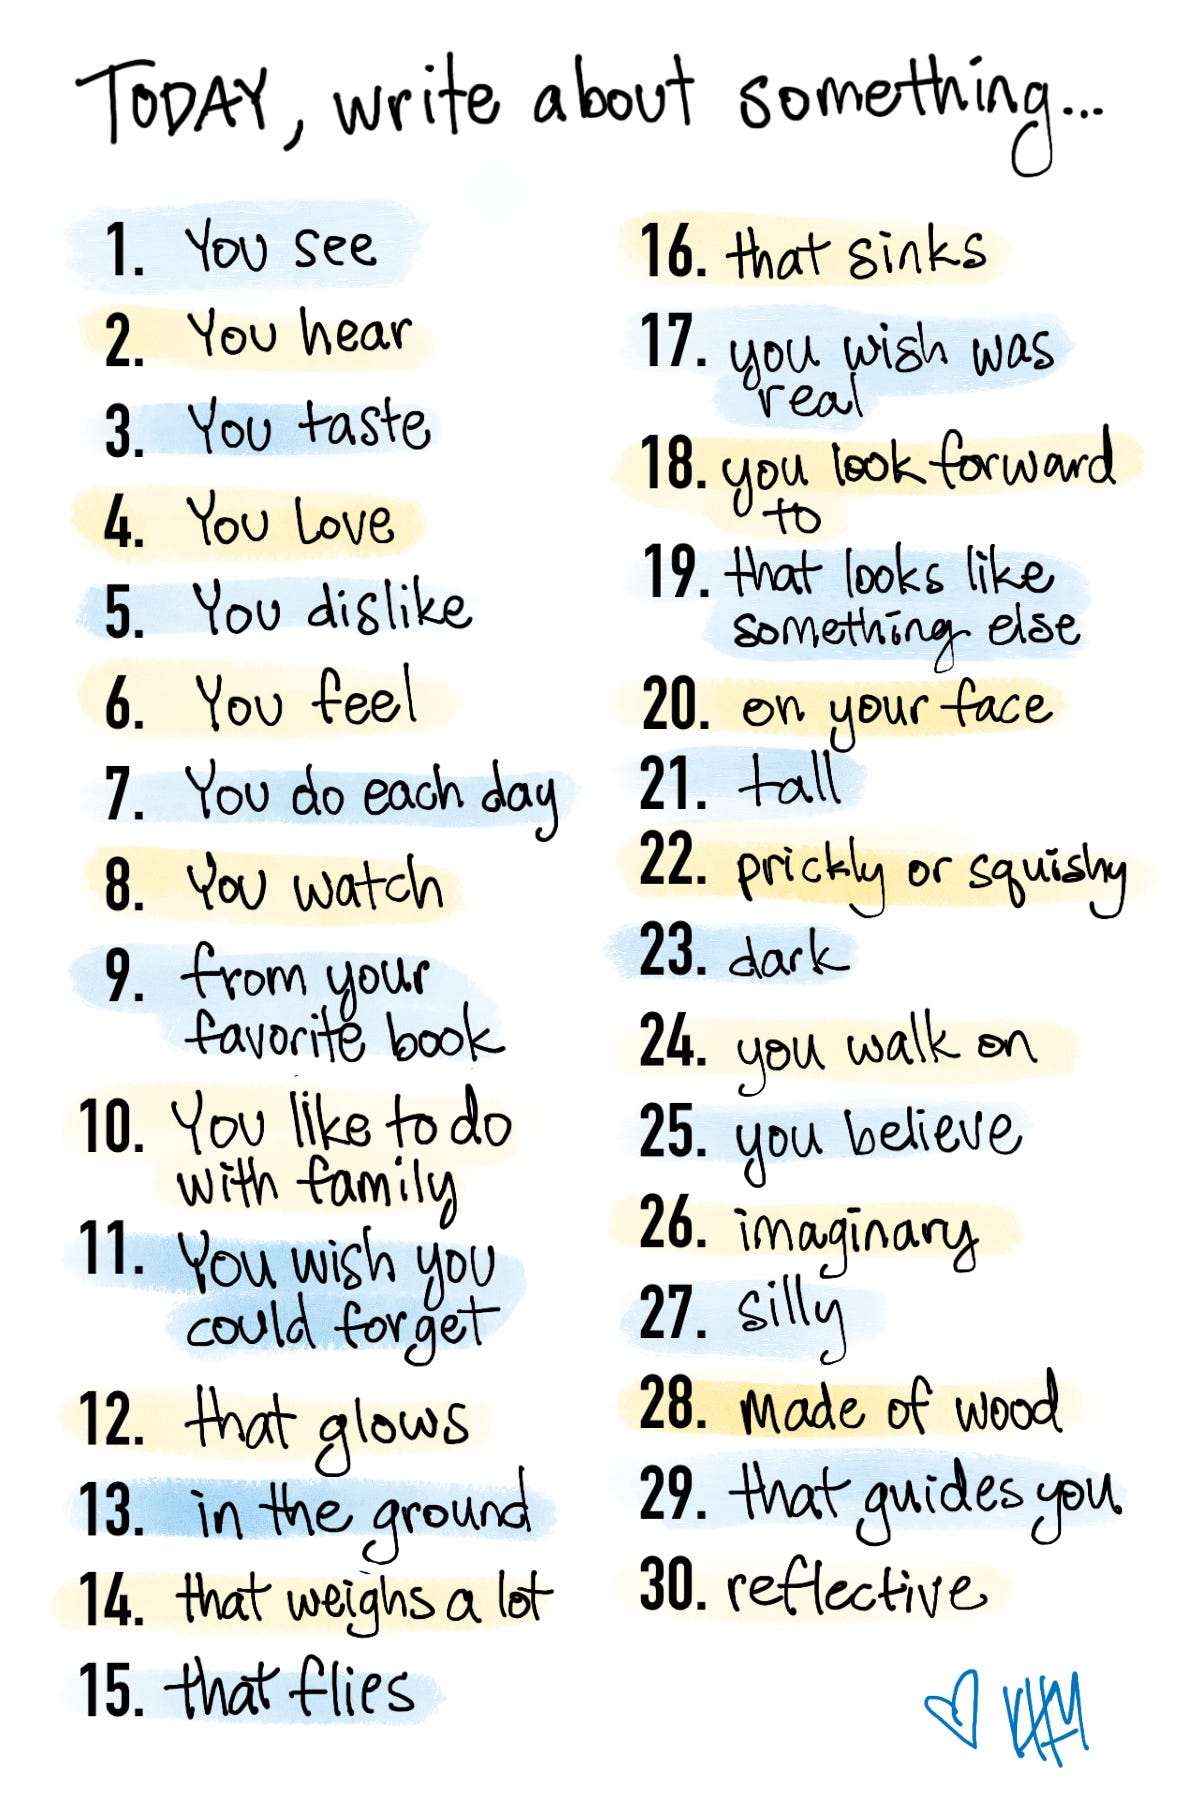 TODAY, write about something...
1. You see
2. You hear
3. You taste
4. You Love
5. You dislike
6. You feel
7. You do each day
8. You watch
9. from your
favorite book
10. You like to do
with family
11. You wish you
could forget
12. that glows
13. in the ground
14. that weighs a lot
15. that flies
16. that sinks
17. you wish was
real
18. you look forward
to
19. that looks like
something else
20. on your face
21. tall
22. prickly or squishy
23. dark
24. you walk on
25. you believe
26. imaginary
27. silly
28. made of wood
29. that guides you.
30. reflective